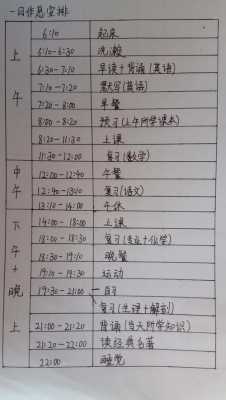 一日作息安排
上午
6:10 起床
6:10-6:30 洗漱
6:30-7:10 早读+背诵(英语)
7:10-7:20 默写(英语)
7:20-8:00 早餐
8:00-8:20 预习(上午所学课本)
8:20-11:30 上课
11:30-12:00 复习(数学)
中午
12:00-12:40 午餐
12:40-13:10 复习(语文)
13:10-14:00 午休
下午+晚上
14:00-18:00 上课
18:00-18:30 复习(专业+化学)
18:30-19:10 晚餐
19:10-19:30 运动
19:30-21:00 一自习
复习(生理+解剖)
21:00-21:20 背诵(当天所学知识)
21:20-22:00 读经典名著
22:00 睡觉